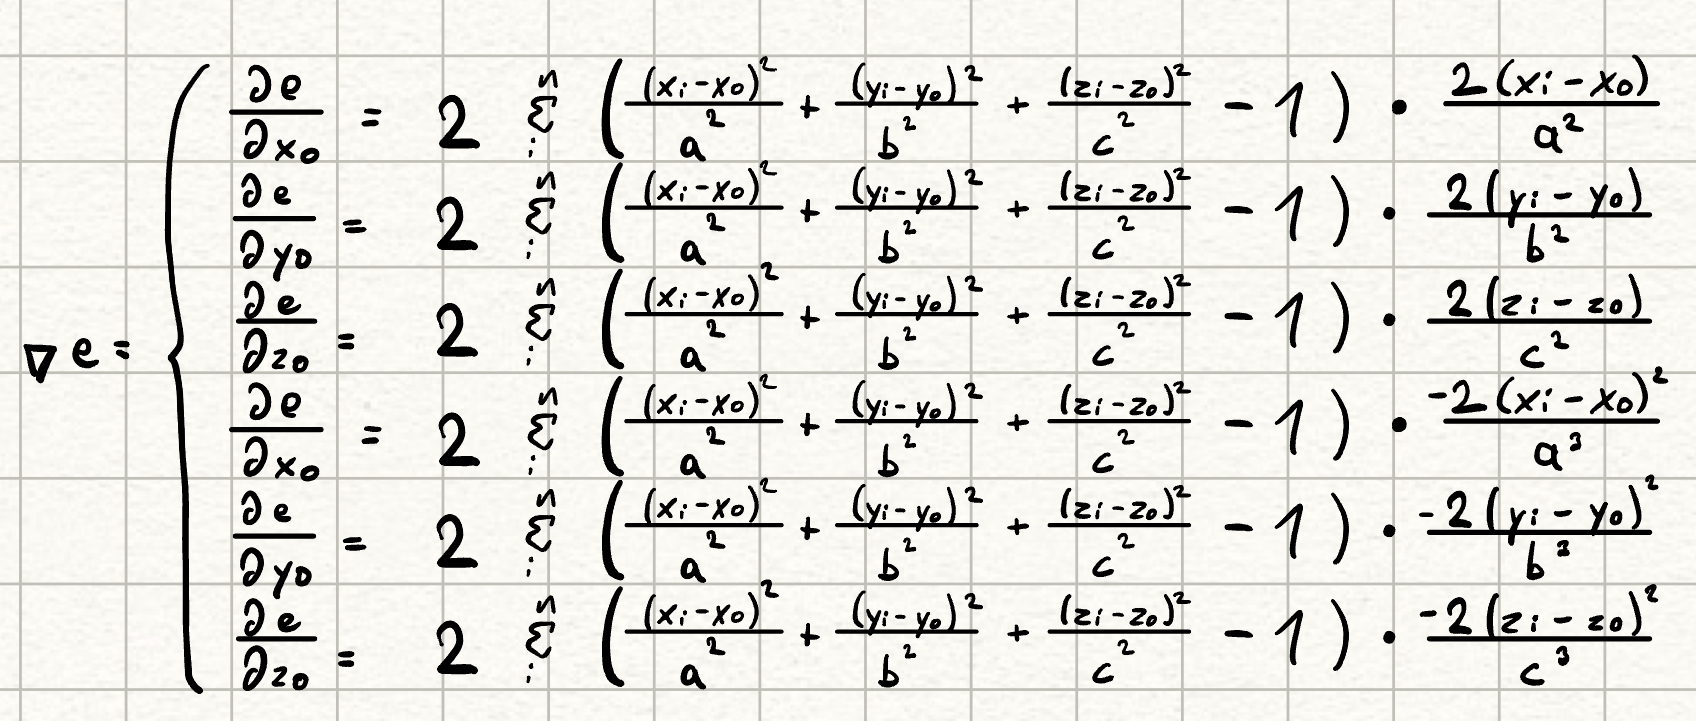 ∇e = { ∂e/∂x₀ = 2 Σᵢⁿ ( (xᵢ-x₀)²/a² + (yᵢ-y₀)²/b² + (zᵢ-z₀)²/c² - 1 ) · 2(xᵢ-x₀)/a²
∂e/∂y₀ = 2 Σᵢⁿ ( (xᵢ-x₀)²/a² + (yᵢ-y₀)²/b² + (zᵢ-z₀)²/c² - 1 ) · 2(yᵢ-y₀)/b²
∂e/∂z₀ = 2 Σᵢⁿ ( (xᵢ-x₀)²/a² + (yᵢ-y₀)²/b² + (zᵢ-z₀)²/c² - 1 ) · 2(zᵢ-z₀)/c²
∂e/∂x₀ = 2 Σᵢⁿ ( (xᵢ-x₀)²/a² + (yᵢ-y₀)²/b² + (zᵢ-z₀)²/c² - 1 ) · -2(xᵢ-x₀)²/a³
∂e/∂y₀ = 2 Σᵢⁿ ( (xᵢ-x₀)²/a² + (yᵢ-y₀)²/b² + (zᵢ-z₀)²/c² - 1 ) · -2(yᵢ-y₀)²/b³
∂e/∂z₀ = 2 Σᵢⁿ ( (xᵢ-x₀)²/a² + (yᵢ-y₀)²/b² + (zᵢ-z₀)²/c² - 1 ) · -2(zᵢ-z₀)²/c³